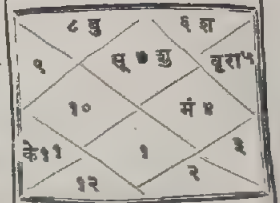 ८ बु ६ श
९ सू ७ शु वृरा५
१० मं ४
के११ १ ३
१२ २